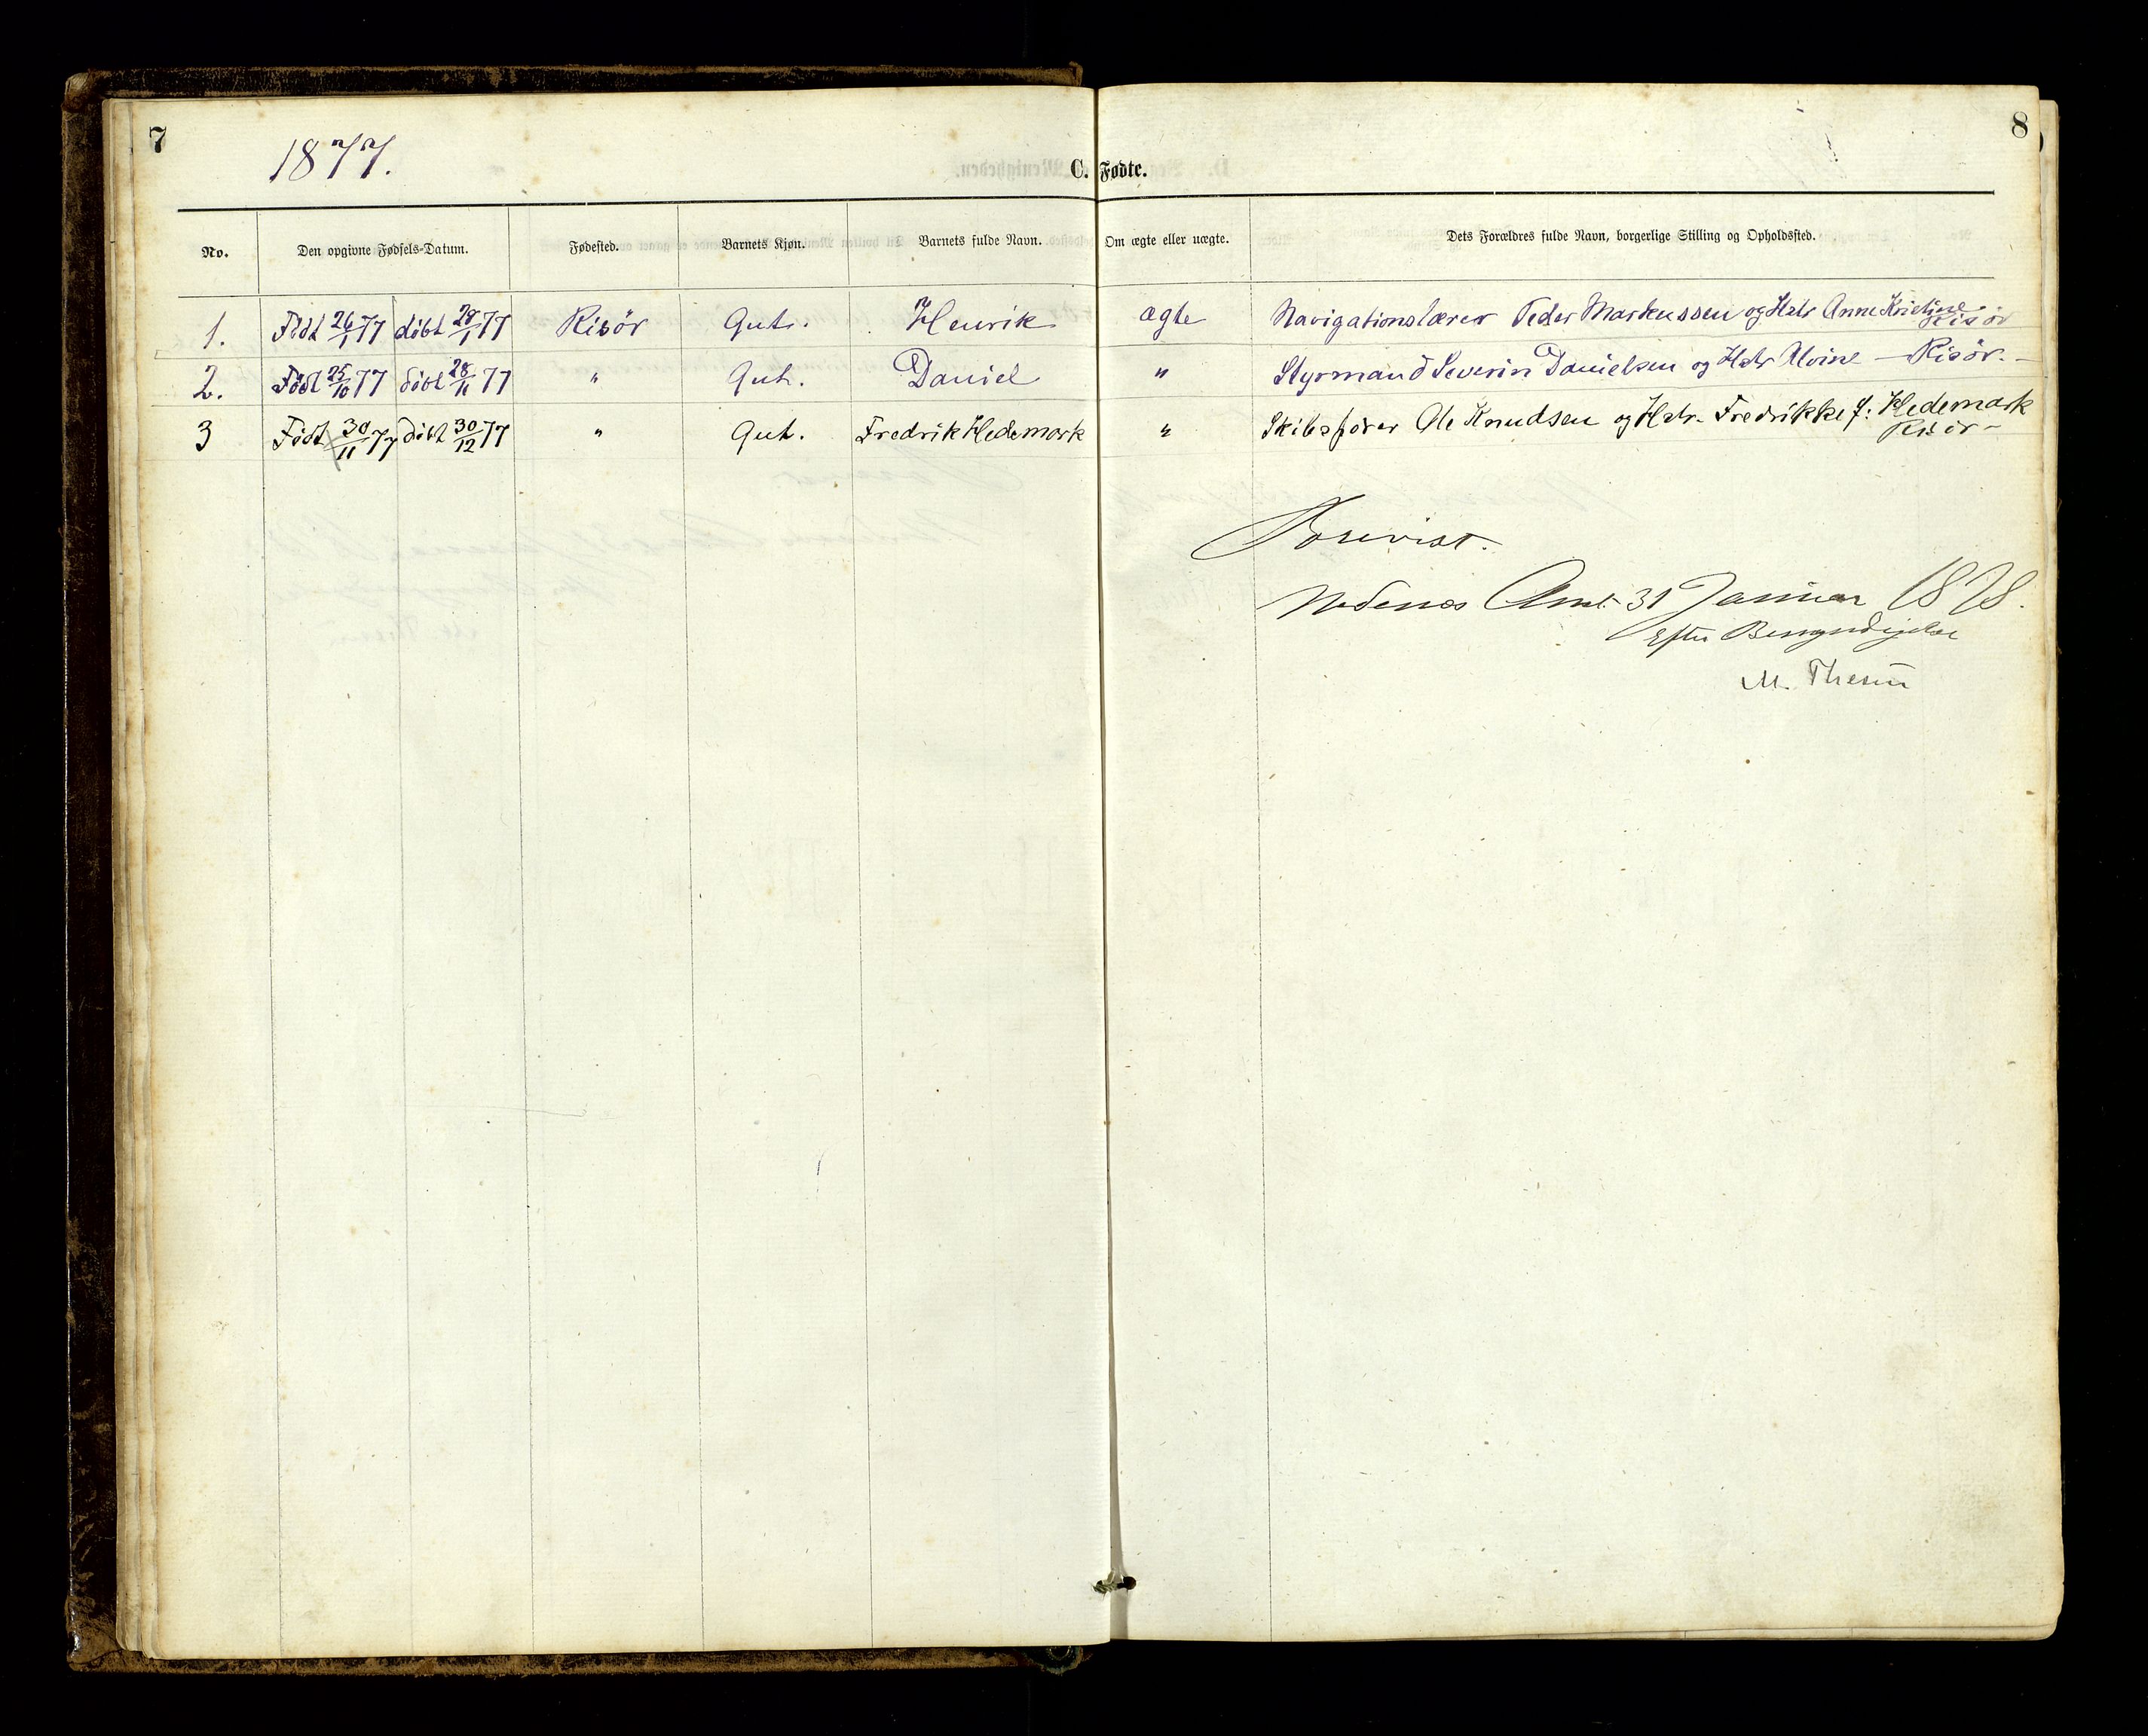 7
8
1877.
C. Fødte.
No. Den opgivne Fødsels-Datum. Fødested. Barnets Kjøn. Barnets fulde Navn. Om ægte eller uægte. Dets Forældres fulde Navn, borgerlige Stilling og Opholdssted.
1. Födt 26/1 77 döbt 29/1 77 Risör Gut. Henrik ægte Navigationslærer Peder Markussen og Hstr Anne Kristine
Risör
2. Födt 25/10 77 döbt 28/11 77 " Gut. Daniel " Styrmand Severin Danielsen og Hstr Alvine – Risör. –
3 Födt 30/11 77 döbt 30/12 77 " Gut. Fredrik Hedemark " Skibsfører Ole Knudsen og Hstr. Fredrikke f: Hedemark
Risör –
Forevist.
Nedenes Amt 31 Januar 1878.
Efter Bemyndigelse
M. Thesen